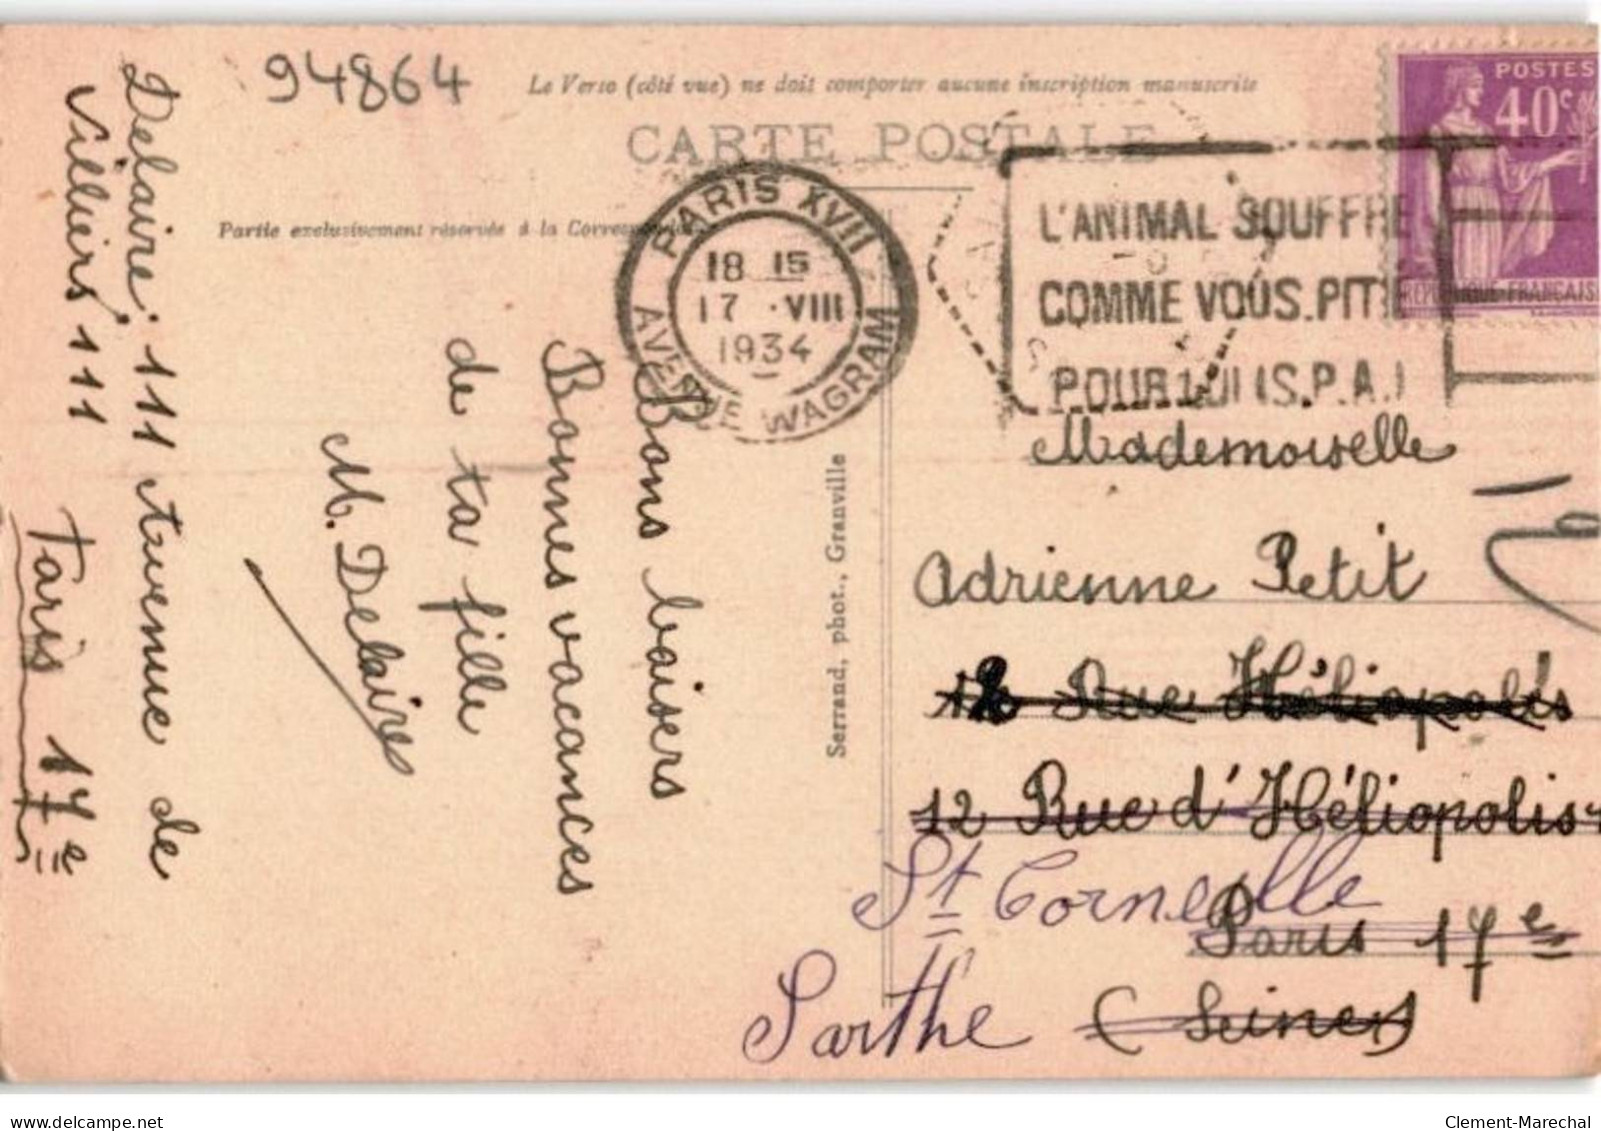 94864
Le Verso (côté vue) ne doit comporter aucune inscription manuscrite
CARTE POSTALE
Partie exclusivement réservée à la Correspondance
POSTES
40c
RÉPUBLIQUE FRANÇAISE
PARIS XVII
18 15
17 · VIII
1934
AVENUE WAGRAM
L'ANIMAL SOUFFRE
COMME VOUS. PITIÉ
POUR LUI (S.P.A.)
Bons baisers
Bonnes vacances
de ta fille
M. Delaire
Delaire, 111 Avenue de
Villiers 111
Paris 17e
Serrand, phot., Granville
Mademoiselle
Adrienne Petit
12 Rue Héliopolis
12 Rue d'Héliopolis
St Corneille
Paris 17e
Sarthe (Seine)
delcampe.net
Clement-Marechal